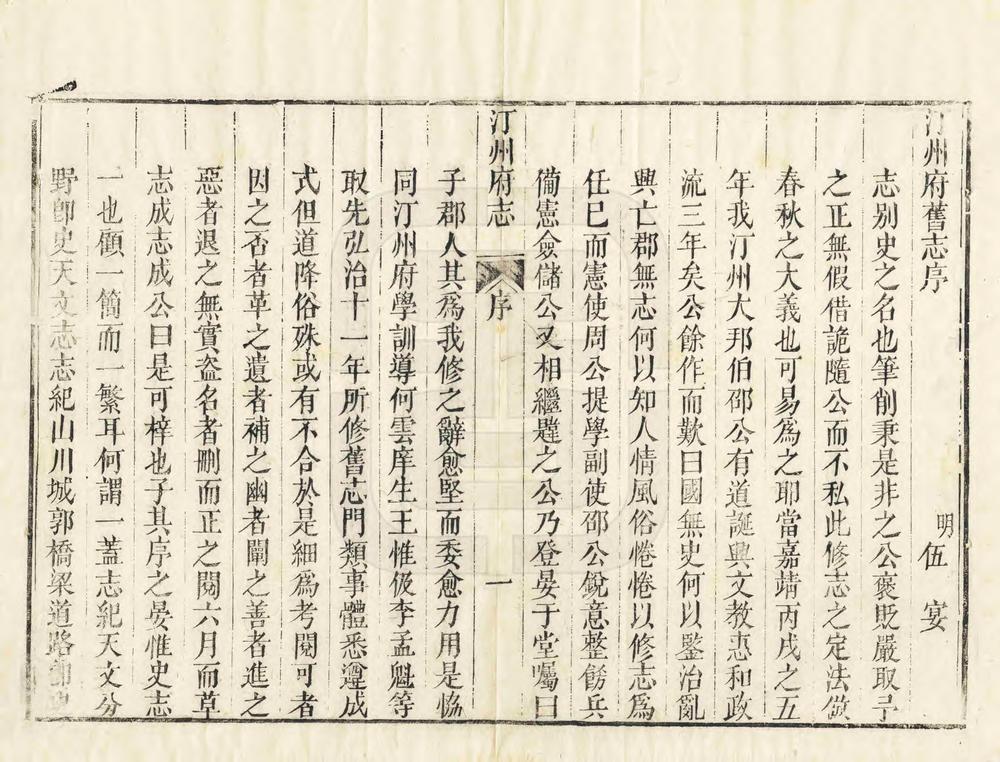 汀州府舊志序
明 伍 宴
志別史之名也筆削秉是非之公褒貶嚴取予
之正無假借詭隨公而不私此修志之定法倣
春秋之大義也可易爲之耶當嘉靖丙戌之五
年我汀州大邦伯邵公有道誕興文教惠和政
流三年矣公餘作而歎曰國無史何以鑒治亂
興亡郡無志何以知人情風俗惓惓以修志爲
任巳而憲使周公提學副使邵公銳意整飭兵
備憲僉儲公又相繼韙之公乃登晏于堂囑曰
汀州府志 序 一
子郡人其爲我修之辭愈堅而委愈力用是恊
同汀州府學訓導何雲庠生王惟伋李孟魁等
取先弘治十一年所修舊志門類事體悉遵成
式但道降俗殊或有不合於是細爲考閱可者
因之否者革之遺者補之幽者闡之善者進之
惡者退之無實盜名者刪而正之閱六月而草
志成志成公曰是可梓也子其序之晏惟史志
一也顧一簡而一繁耳何謂一蓋志紀天文分
野卽史天文志志紀山川城郭橋梁道路卽史